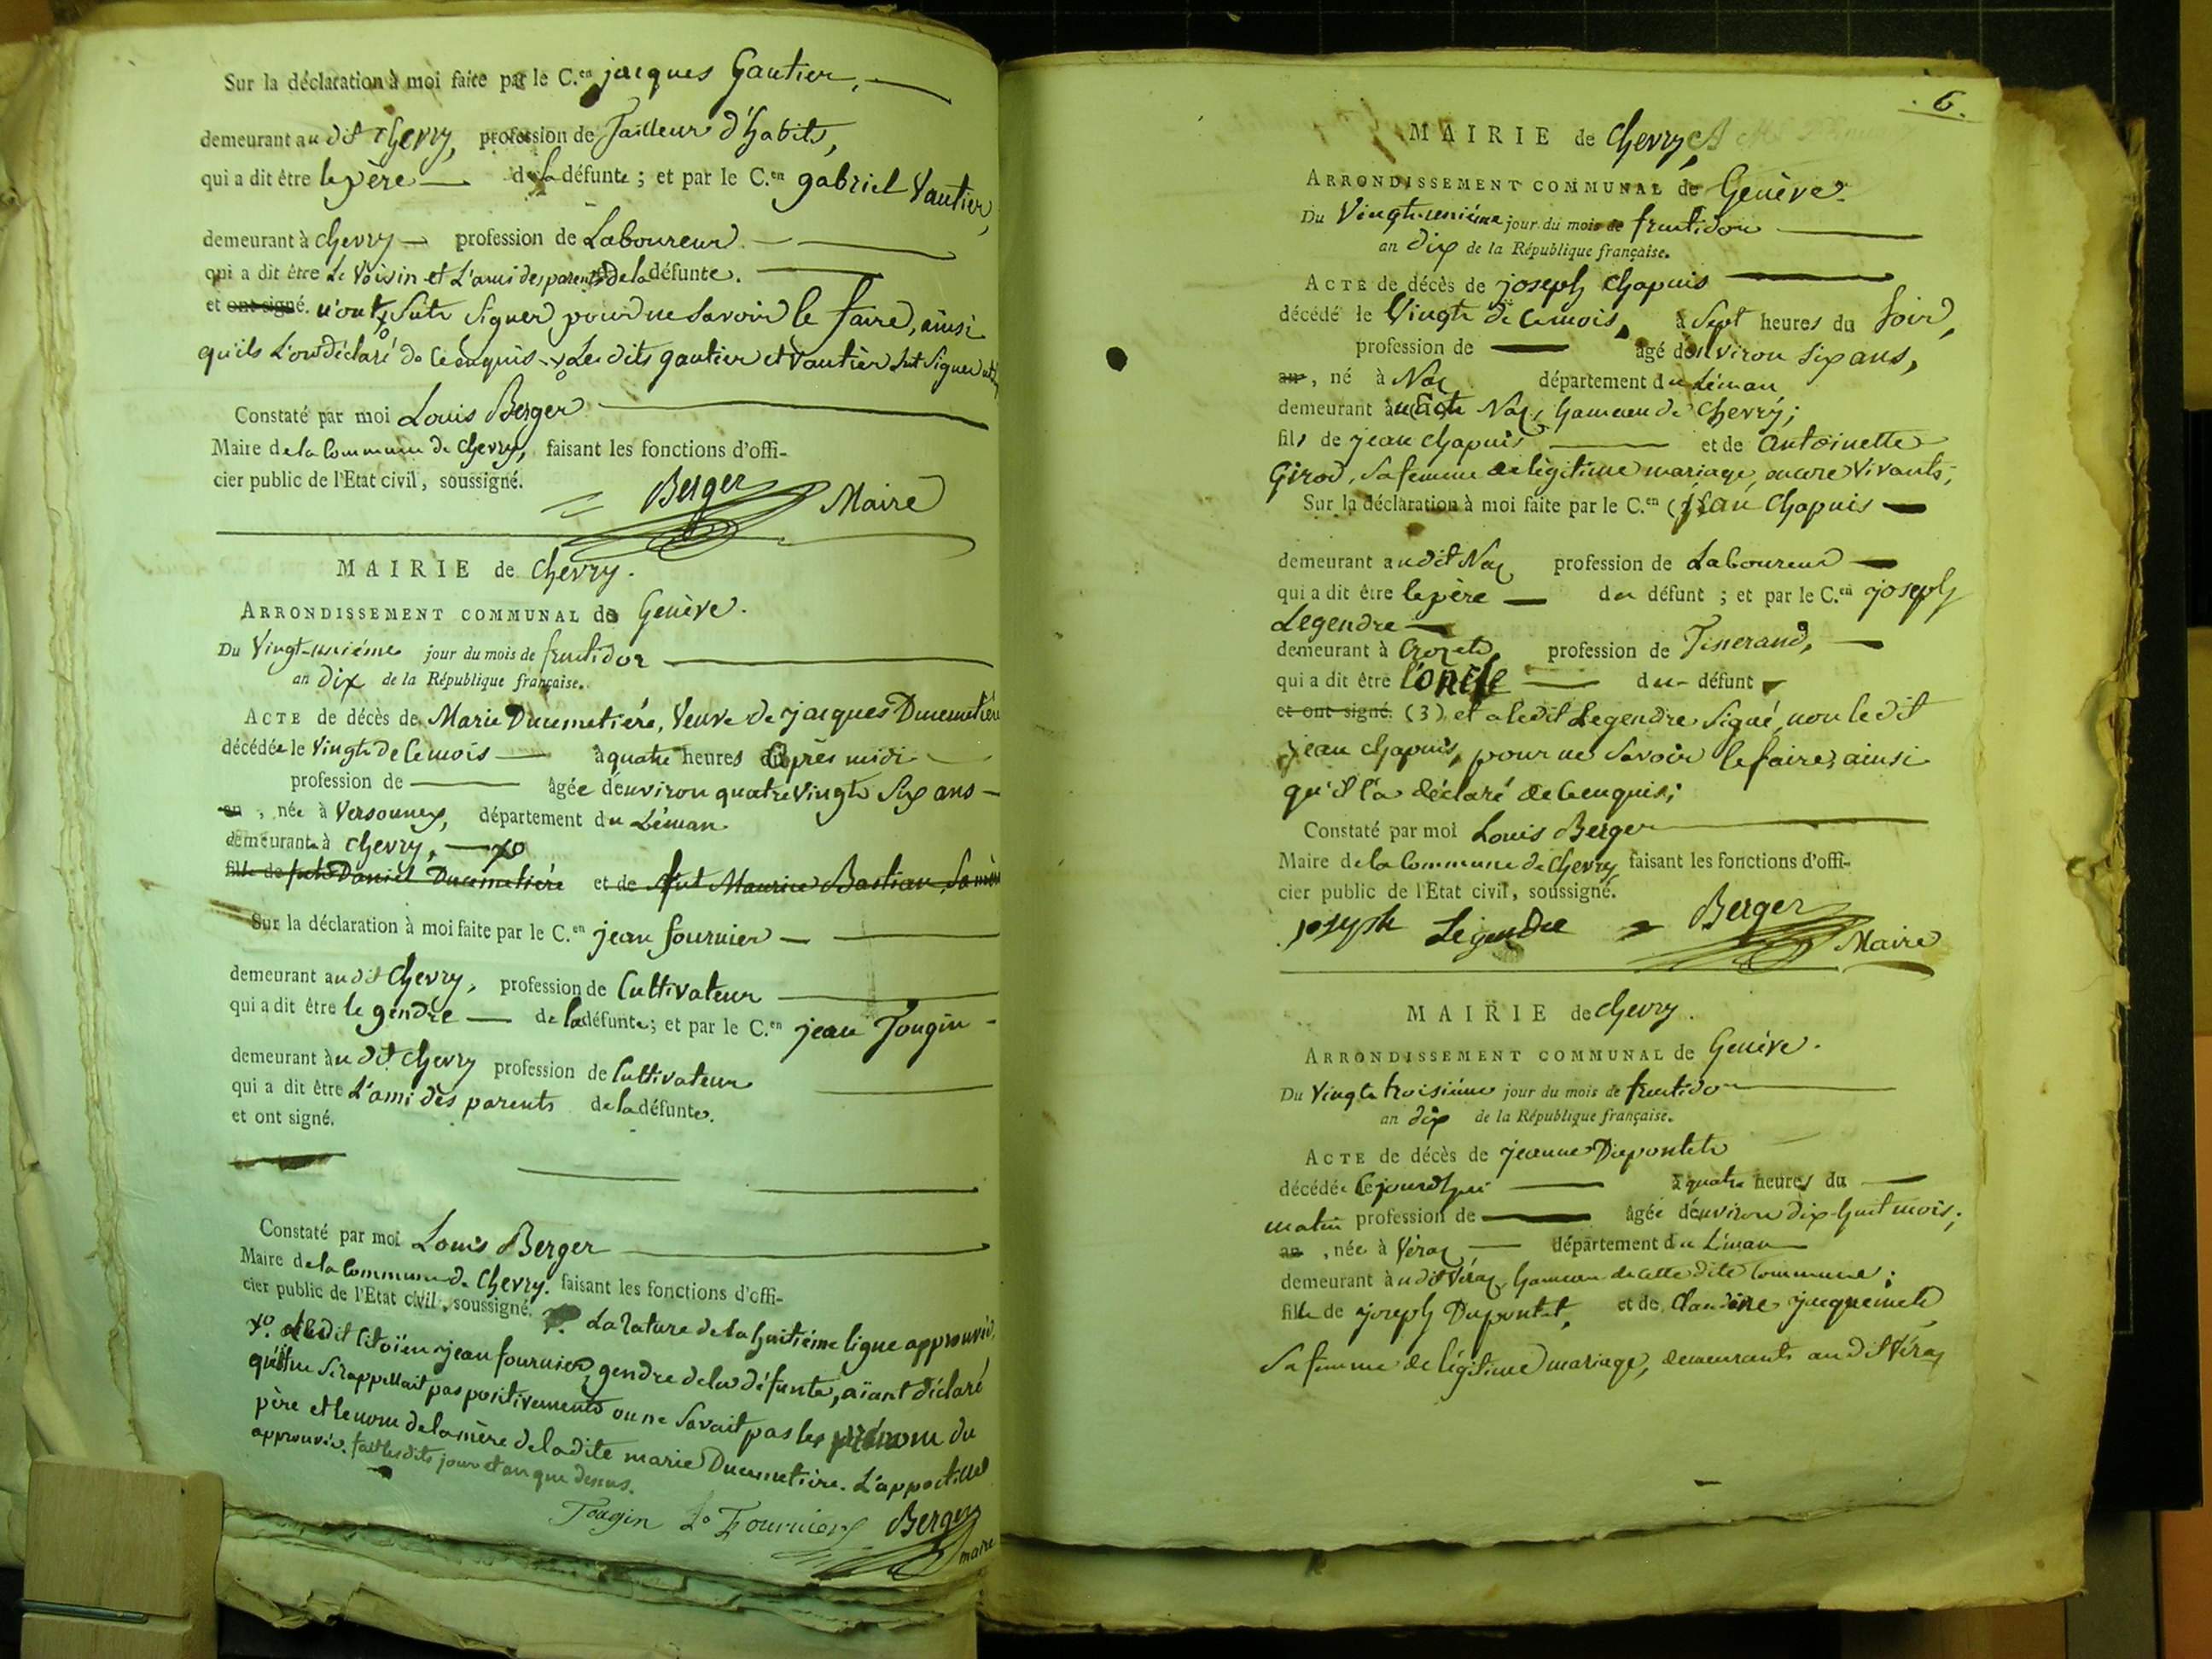 Sur la déclaration à moi faite par le C.en jacques Gautier,
demeurant au dit Chevry, profession de Tailleur d'habits,
qui a dit être le père de la défunte ; et par le C.en gabriel Vautier,
demeurant à chevry profession de Laboureur.
qui a dit être Le Voisin et L'ami des parents de la défunte.
et ont signé. n'ont Sutr Signer pour ne Savoir le faire, ainsi
qu'ils L'ont déclaré de ce enquis Les dits gautier et Vautier Signer
Constaté par moi Louis Berger
Maire de la Commune de Chevry, faisant les fonctions d'offi-
cier public de l'Etat civil, soussigné.
Berger Maire
MAIRIE de Chevry.
ARRONDISSEMENT COMMUNAL de Genève.
Du Vingt-unième jour du mois de fructidor
an Dix de la République française.
ACTE de décès de Marie Ducimetière, Veuve de jacques Ducimetière
décédée le Vingt de ce mois à quatre heures d'après midi
profession de âgée d'environ quatre Vingt Six ans
an , née à Versonnex, département du Léman
demeurant à chevry,
fille de feu Daniel Ducimetière et de fut Maurice Bastian, Sa mère
Sur la déclaration à moi faite par le C.en jean fournier
demeurant au dit Chevry, profession de Cultivateur
qui a dit être le gendre de la défunte; et par le C.en jean Tougin
demeurant au dit chevry profession de Cultivateur
qui a dit être L'ami des parents de la défunte.
et ont signé.
Constaté par moi Louis Berger
Maire de la Commune de Chevry. faisant les fonctions d'offi-
cier public de l'Etat civil, soussigné. La rature de la huitième ligne approuvée,
ledit Citoïen jean fournier, gendre de la défunte, aïant déclaré
qu'il ne Se rappellait pas positivement ou ne Savait pas les prénom du
père et le nom de la mère de la dite marie Ducimetière. L'appostille
approuvée. fait les dits jour et an que dessus.
Tougin Fournier Berger
maire
6.
MAIRIE de Chevry,
ARRONDISSEMENT COMMUNAL de Genève.
Du Vingt-unième jour du mois de fructidor
an dix de la République française.
ACTE de décès de joseph Chapuis
décédé le Vingt de ce mois, à Sept heures du Soir,
profession de âgé d'environ Six ans,
an , né à Naz département du Léman
demeurant au dit Naz, hameau de Chevry;
fils de jean chapuis et de Antoinette
Girod, Sa femme de légitime mariage, encore Vivants;
Sur la déclaration à moi faite par le C.en jean Chapuis
demeurant au dit Naz profession de Laboureur
qui a dit être le père du défunt ; et par le C.en joseph
Legendre
demeurant à Crozet, profession de Tisserand,
qui a dit être l'oncle du défunt
et ont signé. (3) et a ledit Legendre Signé, non le dit
jean chapuis, pour ne Savoir le faire, ainsi
qu'il l'a déclaré de ce enquis;
Constaté par moi Louis Berger
Maire de la Commune de Chevry faisant les fonctions d'offi-
cier public de l'Etat civil, soussigné.
joseph Legendre Berger
Maire
MAIRIE de chevry.
ARRONDISSEMENT COMMUNAL de Genève.
Du Vingt troisième jour du mois de fructidor
an dix de la République française.
ACTE de décès de jeanne Dupontet
décédée Cejourd'hui à quatre heures du
matin profession de âgée d'environ dix-huit mois;
an , née à Véraz département du Léman
demeurant au dit Véraz hameau de cette dite Commune;
fille de joseph Dupontet, et de Claudine jacquemet
Sa femme de légitime mariage, demeurants au dit Véraz